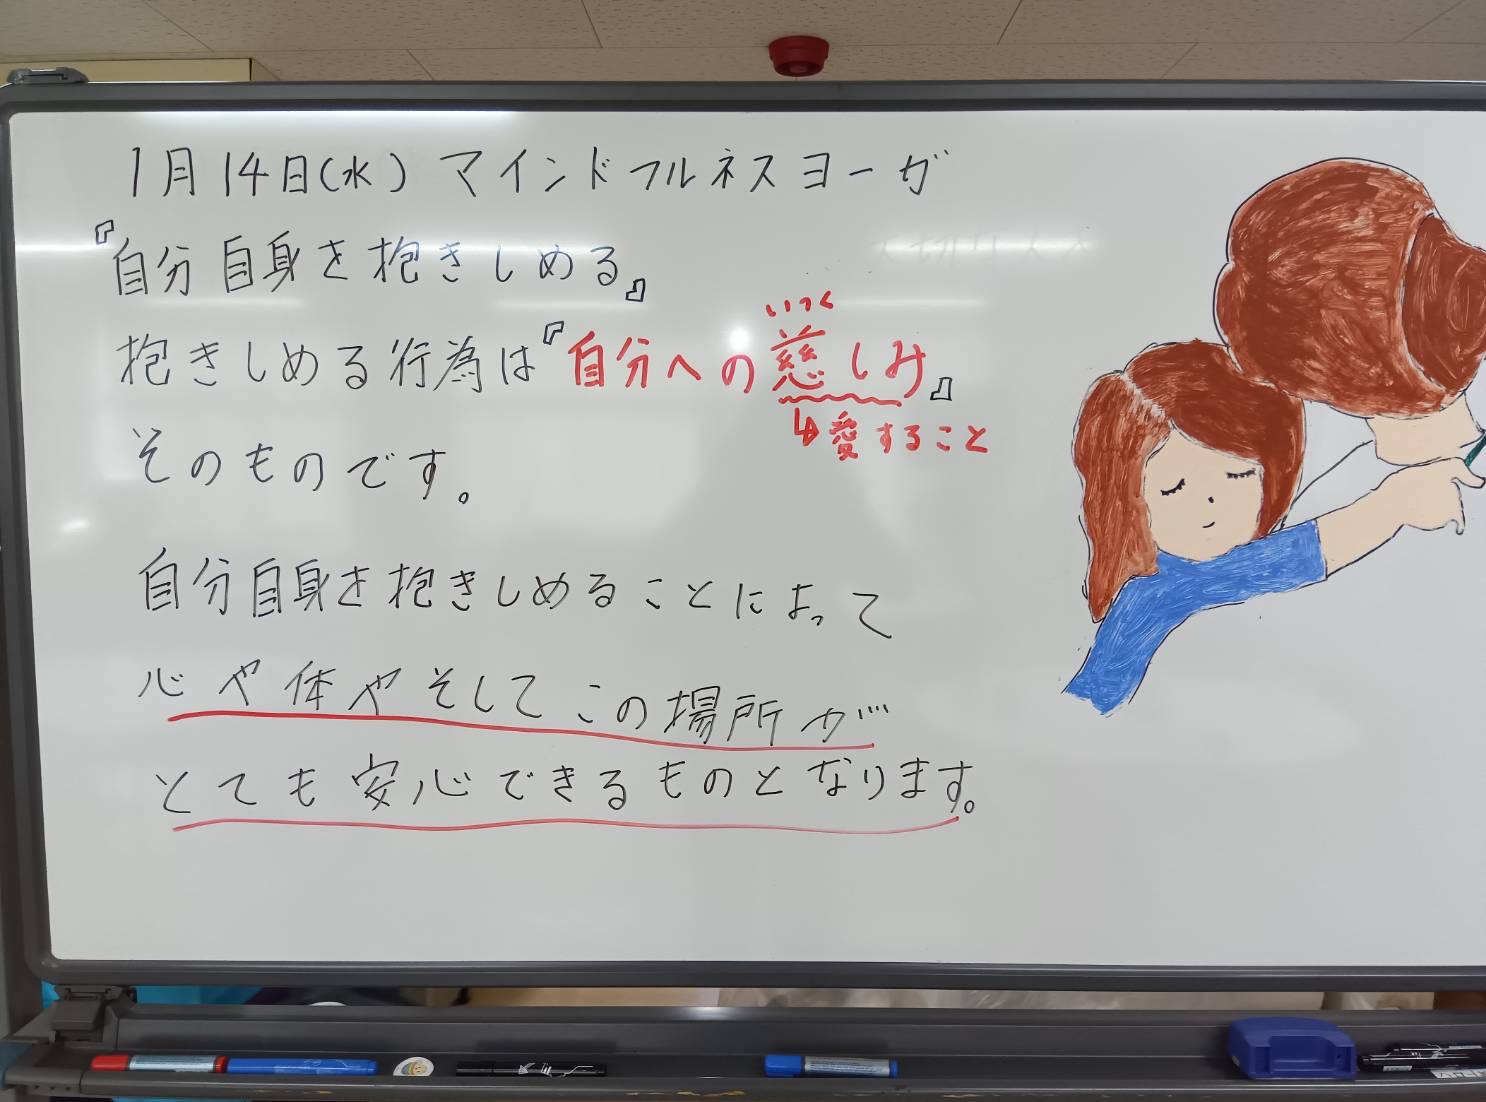 1月14日(水) マインドフルネスヨーガ
『自分自身を抱きしめる』
いつく
抱きしめる行為は『自分への慈しみ』
↳愛すること
そのものです。
自分自身を抱きしめることによって
心や体やそしてこの場所が
とても安心できるものとなります。